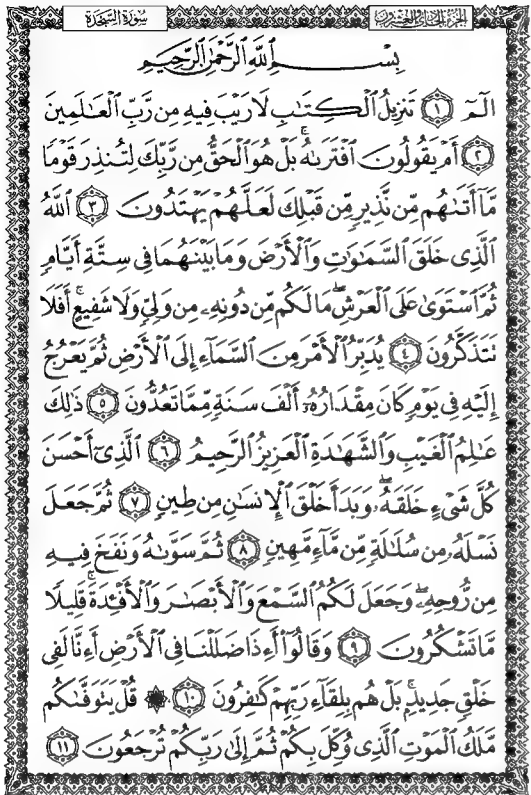 سُورَةُ السَّجْدَةِ
الجُزْءُ الحَادِي وَالعِشْرُونَ
بِسْمِ ٱللَّهِ ٱلرَّحْمَٰنِ ٱلرَّحِيمِ
الٓمٓ ١ تَنزِيلُ ٱلْكِتَٰبِ لَا رَيْبَ فِيهِ مِن رَّبِّ ٱلْعَٰلَمِينَ
٢ أَمْ يَقُولُونَ ٱفْتَرَىٰهُ ۚ بَلْ هُوَ ٱلْحَقُّ مِن رَّبِّكَ لِتُنذِرَ قَوْمًا
مَّآ أَتَىٰهُم مِّن نَّذِيرٍ مِّن قَبْلِكَ لَعَلَّهُمْ يَهْتَدُونَ ٣ ٱللَّهُ
ٱلَّذِى خَلَقَ ٱلسَّمَٰوَٰتِ وَٱلْأَرْضَ وَمَا بَيْنَهُمَا فِى سِتَّةِ أَيَّامٍ
ثُمَّ ٱسْتَوَىٰ عَلَى ٱلْعَرْشِ ۖ مَا لَكُم مِّن دُونِهِۦ مِن وَلِىٍّ وَلَا شَفِيعٍ ۚ أَفَلَا
تَتَذَكَّرُونَ ٤ يُدَبِّرُ ٱلْأَمْرَ مِنَ ٱلسَّمَآءِ إِلَى ٱلْأَرْضِ ثُمَّ يَعْرُجُ
إِلَيْهِ فِى يَوْمٍ كَانَ مِقْدَارُهُۥٓ أَلْفَ سَنَةٍ مِّمَّا تَعُدُّونَ ٥ ذَٰلِكَ
عَٰلِمُ ٱلْغَيْبِ وَٱلشَّهَٰدَةِ ٱلْعَزِيزُ ٱلرَّحِيمُ ٦ ٱلَّذِىٓ أَحْسَنَ
كُلَّ شَىْءٍ خَلَقَهُۥ ۖ وَبَدَأَ خَلْقَ ٱلْإِنسَٰنِ مِن طِينٍ ٧ ثُمَّ جَعَلَ
نَسْلَهُۥ مِن سُلَٰلَةٍ مِّن مَّآءٍ مَّهِينٍ ٨ ثُمَّ سَوَّىٰهُ وَنَفَخَ فِيهِ
مِن رُّوحِهِۦ ۖ وَجَعَلَ لَكُمُ ٱلسَّمْعَ وَٱلْأَبْصَٰرَ وَٱلْأَفْـِٔدَةَ ۚ قَلِيلًا
مَّا تَشْكُرُونَ ٩ وَقَالُوٓا۟ أَءِذَا ضَلَلْنَا فِى ٱلْأَرْضِ أَءِنَّا لَفِى
خَلْقٍ جَدِيدٍۭ ۚ بَلْ هُم بِلِقَآءِ رَبِّهِمْ كَٰفِرُونَ ١٠ ۞ قُلْ يَتَوَفَّىٰكُم
مَّلَكُ ٱلْمَوْتِ ٱلَّذِى وُكِّلَ بِكُمْ ثُمَّ إِلَىٰ رَبِّكُمْ تُرْجَعُونَ ١١